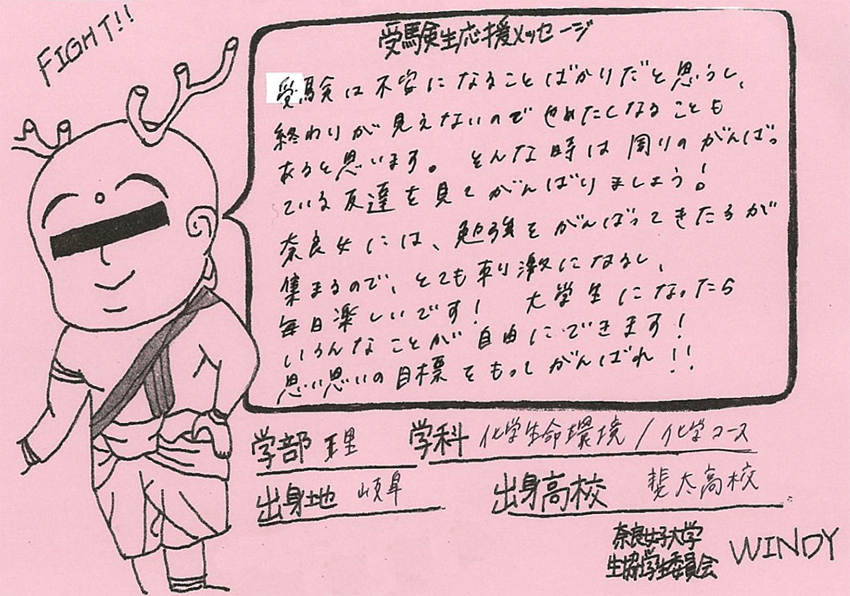 FIGHT!!
受験生応援メッセージ
受験は不安になることばかりだと思うし、
終わりが見えないのでやめたくなることも
あると思います。そんな時は周りのがんばっ
ている友達を見てがんばりましょう!
奈良女には、勉強をがんばってきた子が
集まるので、とても刺激になるし、
毎日楽しいです! 大学生になったら
いろんなことが自由にできます!
思い思いの目標をもってがんばれ!!
学部 理 学科 化学生命環境/化学コース
出身地 岐阜 出身高校 斐太高校
奈良女子大学
生協学生委員会 WINDY